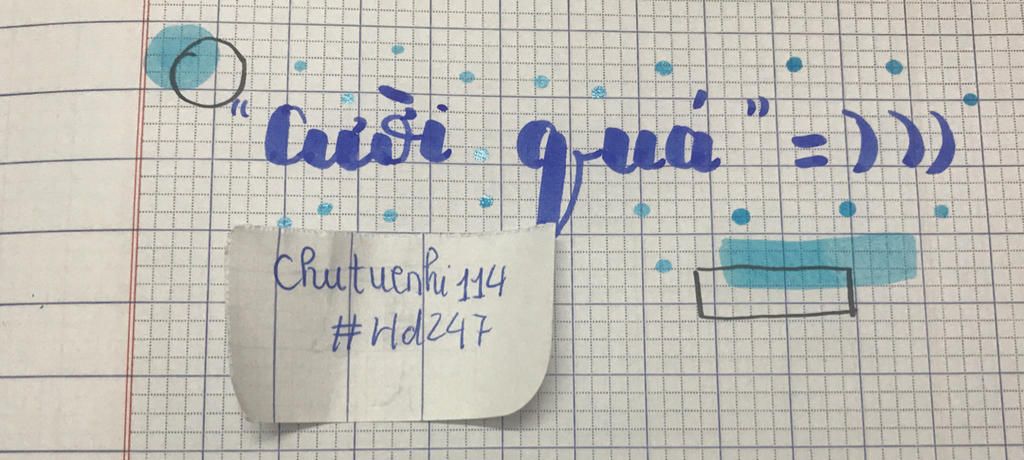 "Cười quá" =)))
chutuenhi114
#Hd247